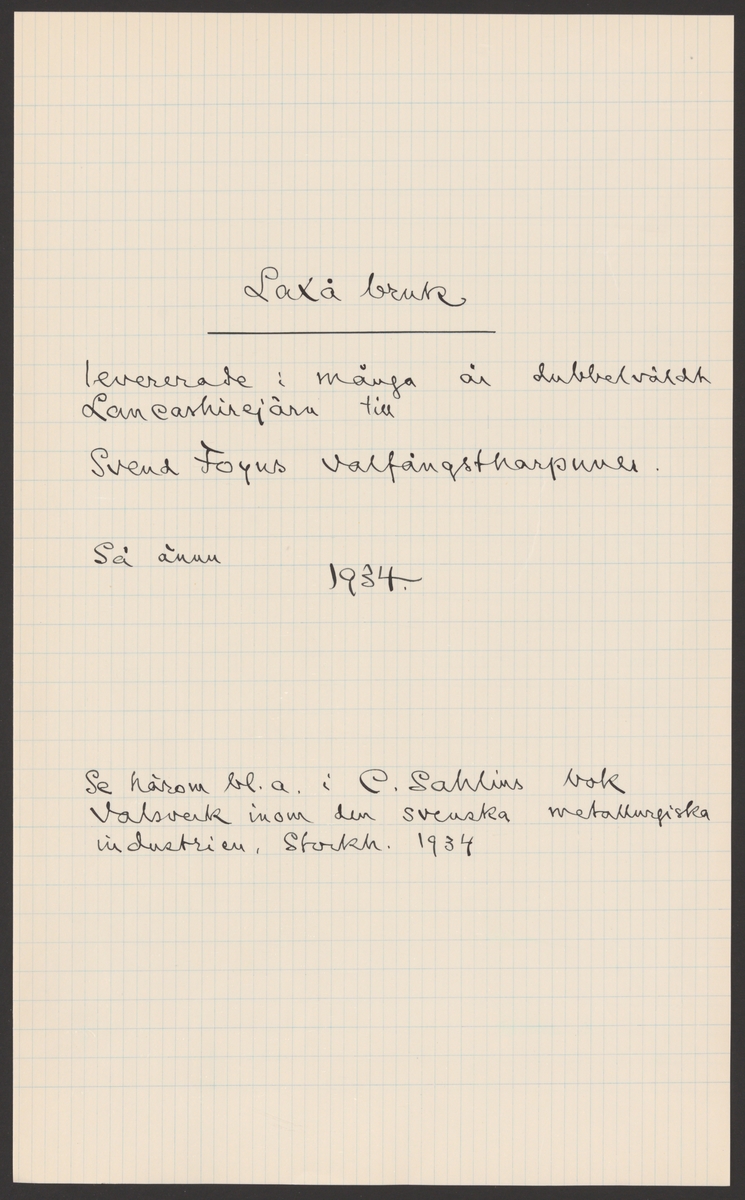 Laxå bruk
levererade i många år dubbelvåldt
Lancashirejärn till
Svend Foyns valfångstharpuner.
Så ännu
1934.
Se härom bl. a. i C. Sahlins bok
Valsverk inom den svenska metallurgiska
industrien, Stockh. 1934